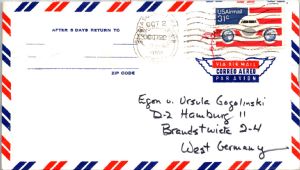 AFTER 5 DAYS RETURN TO
OCT 2
USAirmail
31c
ZIP CODE
VIA AIR MAIL
CORREO AEREO
PAR AVION
Egon u. Ursula Gogolinski
D-2 Hamburg 11
Brandstwiete 2-4
West Germany